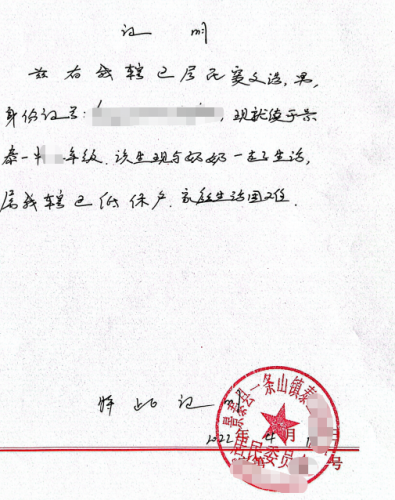 证 明
兹有我辖区居民寇文浩,男,
身份证号:,现就读于景
泰一中年级.该生现与奶奶一起生活,
属我辖区低保户.家庭生活困难.
特此证明
2022年4月
景泰县一条山镇泰
居民委员
号